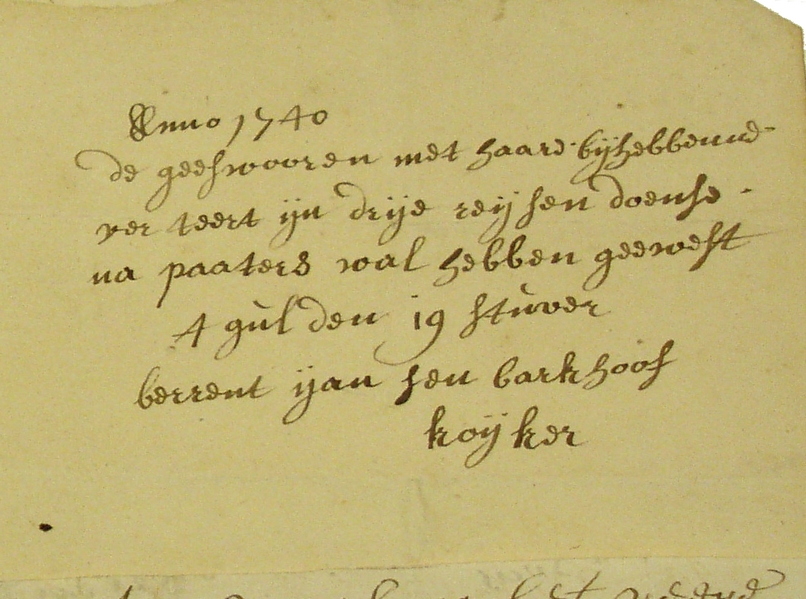 Anno 1740
de geeswooren met haare bijhebbende
ver teert ijn drije reijsen doense
na paaters wal hebben geewest
4 gulden 19 stuver
berrent ijan sen barkhoof
koijker